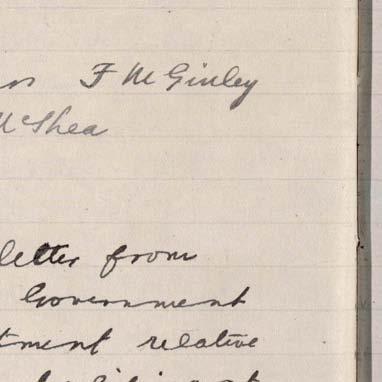 F McGinley
McShea
letter from
Government
tment relative